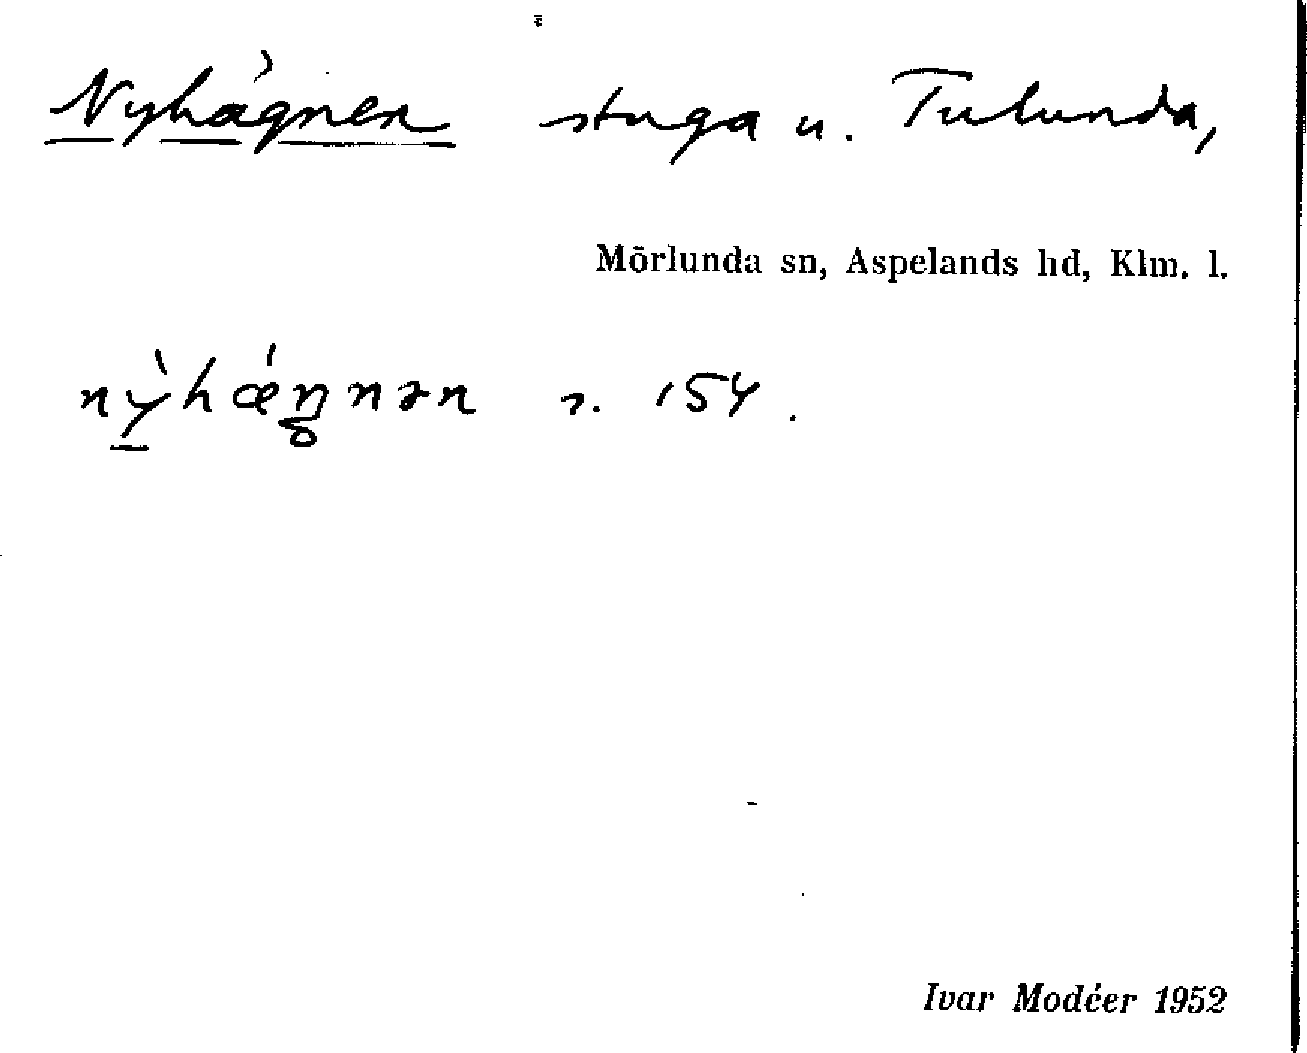 Nyhagnen stuga u. Tulunda,
Mörlunda sn, Aspelands hd, Klm. l.
nỳhǽŋnən s. 154.
Ivar Modéer 1952